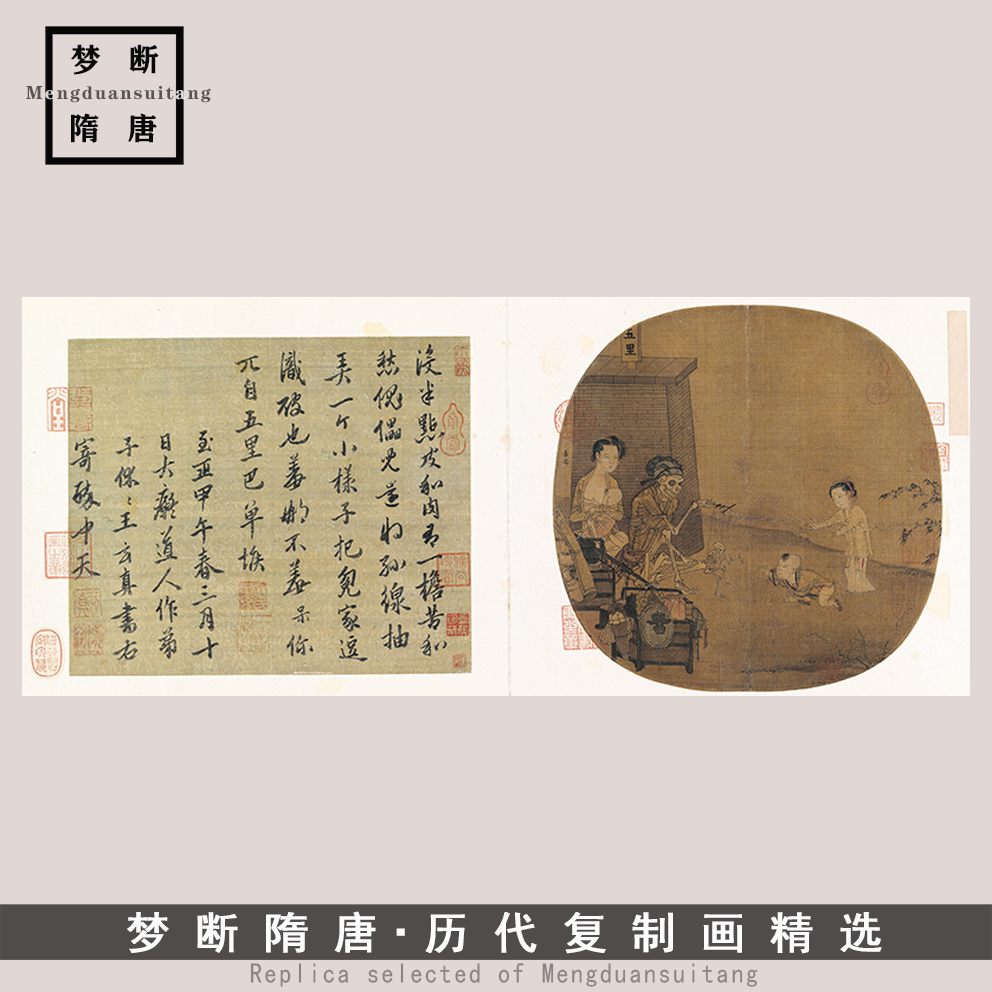 梦断
Mengduansuitang
隋唐
五里
没半點皮和肉有一擔苦和
愁傀儡兒還將絲線抽
弄一个小樣子把冤家逗
識破也羞那不羞呆你
兀自五里巴单堠
至正甲午春三月十
日大癡道人作弟
子休々王玄真書右
寄醉中天
梦断隋唐·历代复制画精选
Replica selected of Mengduansuitang